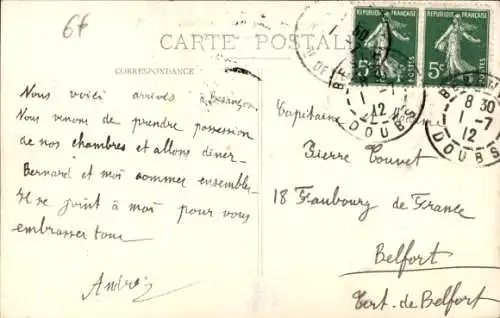 6f
CARTE POSTALE
CORRESPONDANCE
RÉPUBLIQUE FRANÇAISE
5c
POSTES
RÉPUBLIQUE FRANÇAISE
5c
POSTES
1-7
12
DOUBS
8 30
1-7
12
DOUBS
Nous voici arrivés à Besançon
Nous venons de prendre possession
de nos chambres et allons dîner
Bernard et moi sommes ensembles
Il se joint à moi pour vous
embrasser tous
André
Capitaine
Pierre Touvet
18 Faubourg de France
Belfort
Terr. de Belfort